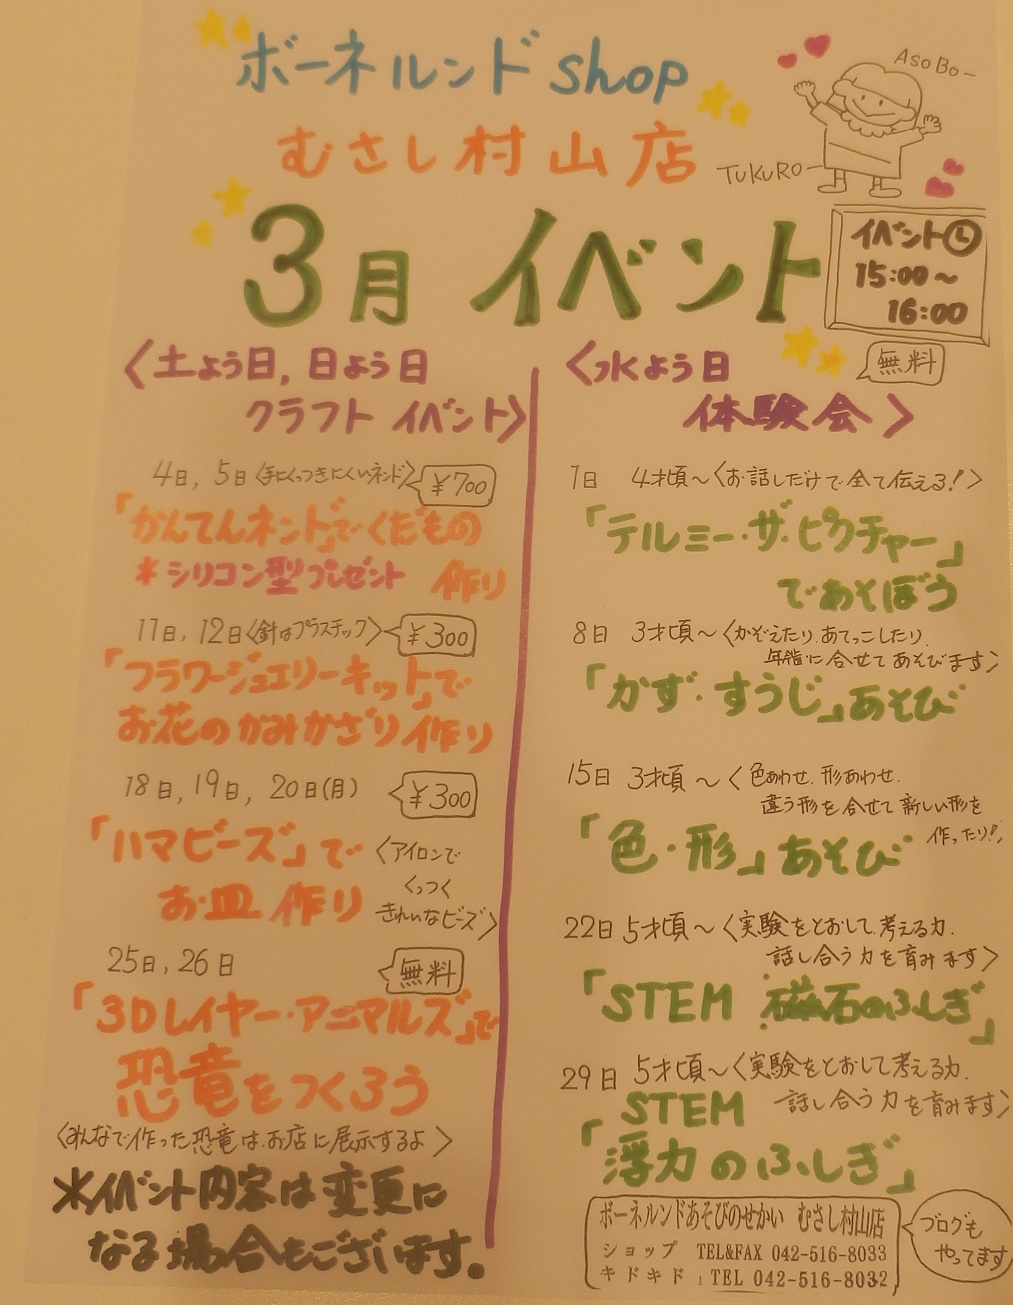 ボーネルンド shop
AsoBo-
むさし村山店
TUKURO-
3月 イベント
イベント
15:00〜
16:00
〈土よう日, 日よう日
クラフト イベント〉
4日, 5日〈手にくっつきにくいネンド〉 ¥700
「かんてんネンド」でくだもの
*シリコン型プレゼント 作り
11日, 12日〈針はプラスチック〉 ¥300
「フラワージュエリーキット」で
お花のかみかざり作り
18日, 19日, 20日(月) ¥300
「ハマビーズ」で
お皿 作り
〈アイロンで
くっつく
きれいなビーズ〉
25日, 26日 無料
「3Dレイヤー・アニマルズ」で
恐竜をつくろう
〈みんなで作った恐竜は、お店に展示するよ〉
*イベント内容は変更に
なる場合もございます。
〈水よう日 無料
体験会〉
1日 4才頃〜〈お話しだけで全て伝える!〉
「テルミー・ザ・ピクチャー」
であそぼう
8日 3才頃〜〈かぞえたり、あてっこしたり、
年齢に合せてあそびます〉
「かず・すうじ」あそび
15日 3才頃〜〈色あわせ、形あわせ、
違う形を合せて新しい形を
作ったり!〉
「色・形」あそび
22日 5才頃〜〈実験をとおして、考える力、
話し合う力を育みます〉
「STEM 磁石のふしぎ」
29日 5才頃〜〈実験をとおして考える力、
話し合う力を育みます〉
STEM
「浮力のふしぎ」
ボーネルンドあそびのせかい むさし村山店
ショップ TEL&FAX 042-516-8033
キドキド TEL 042-516-8032
ブログも
やってます